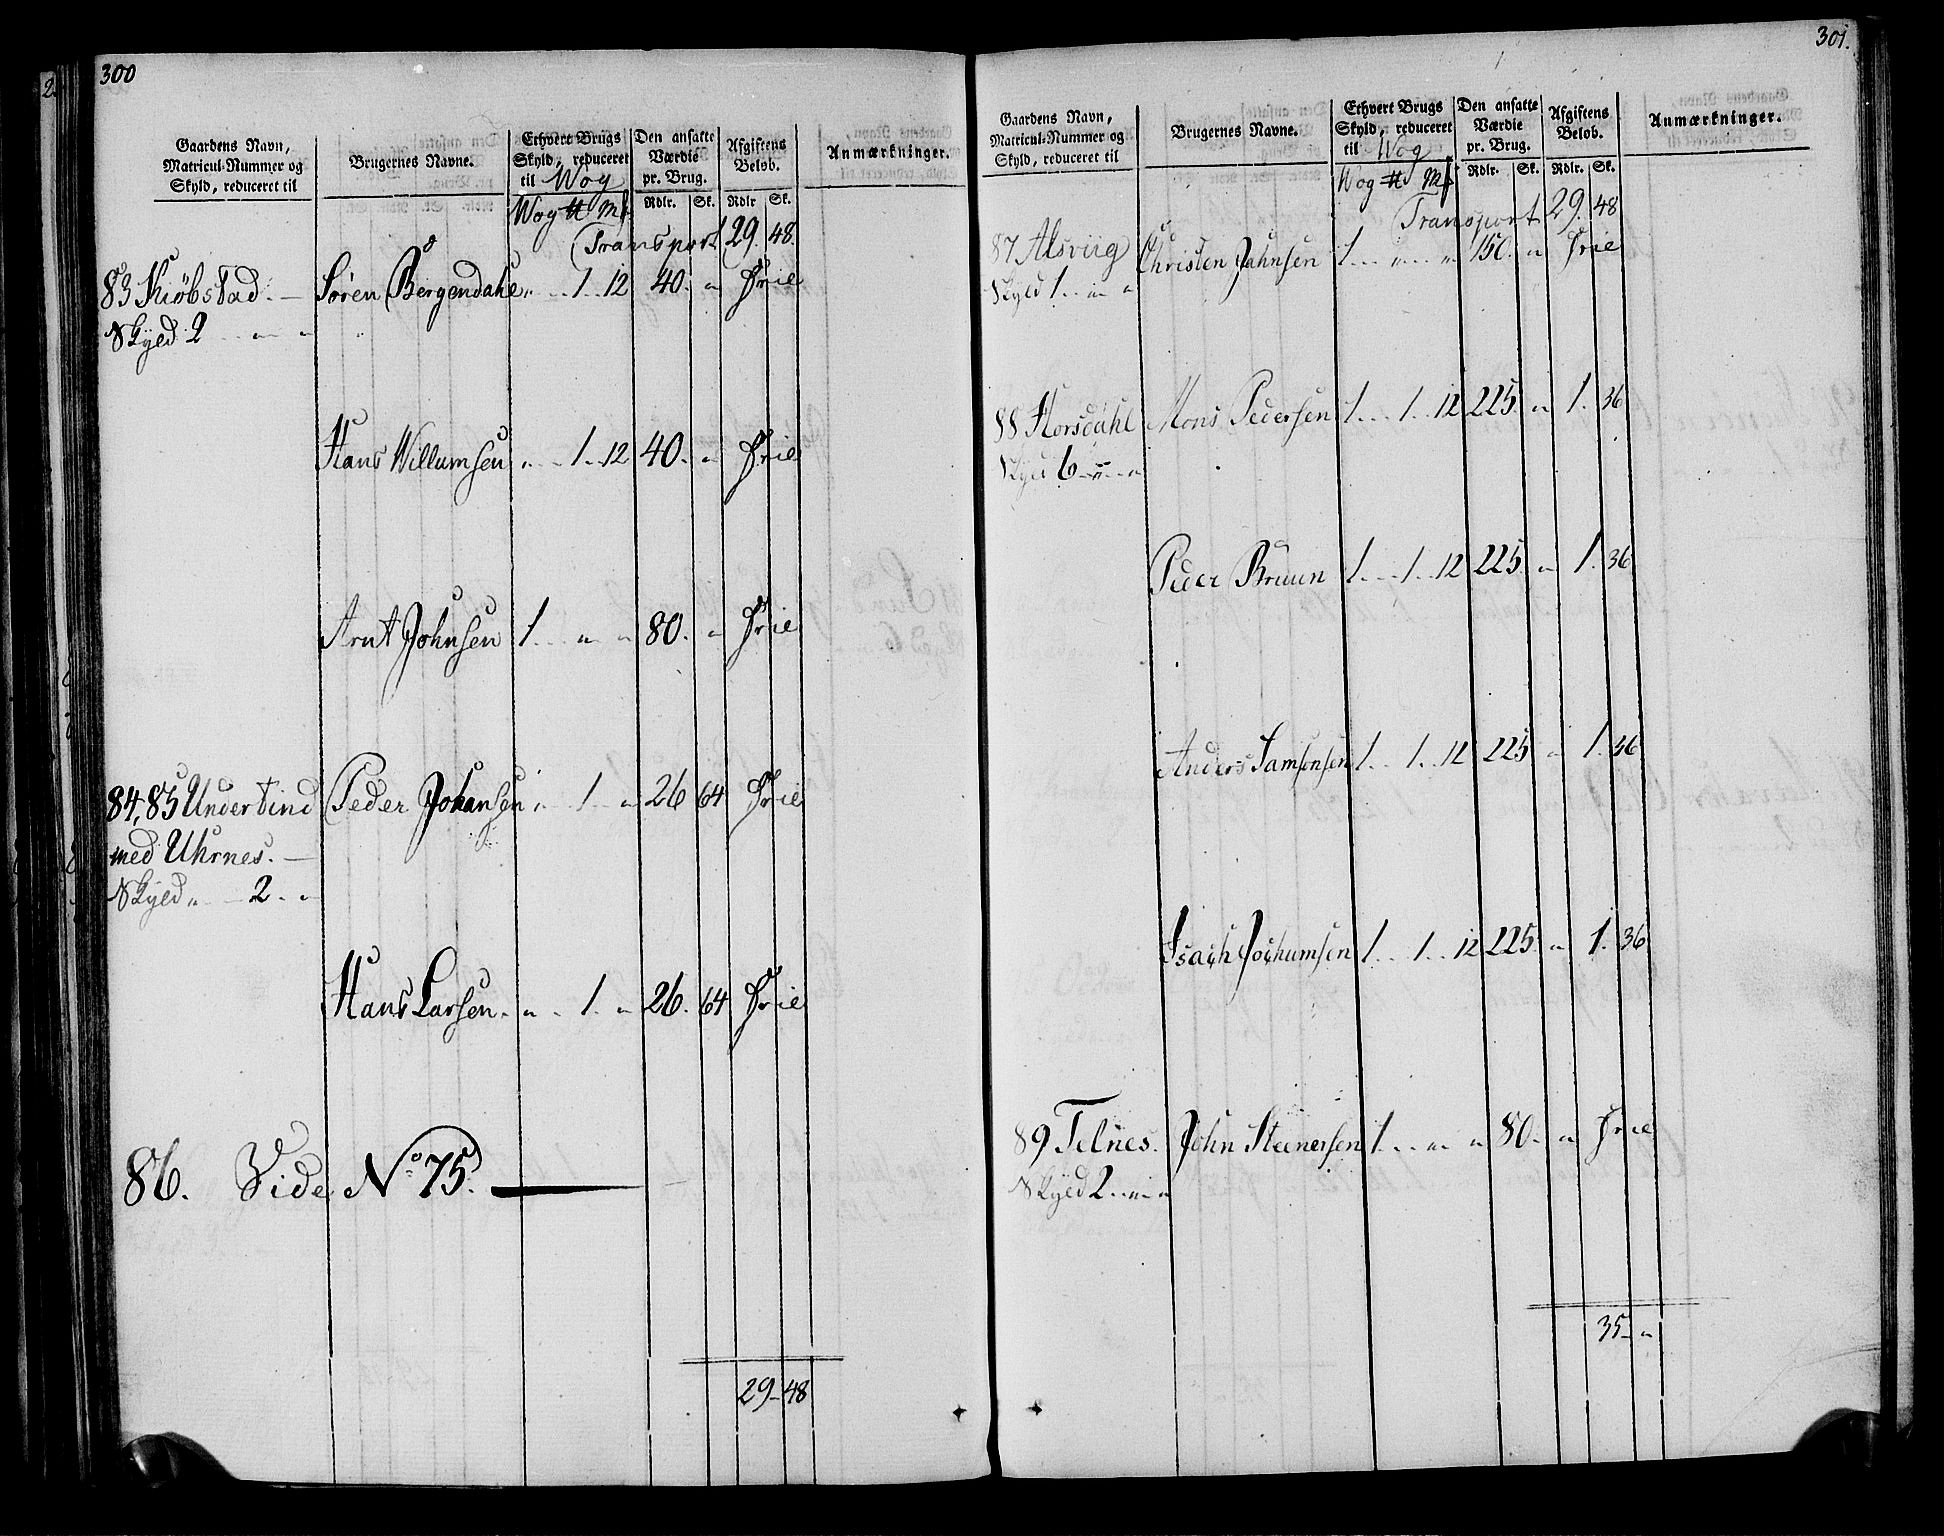 300
Gaardens Navn, Matricul-Nummer og Skyld, reduceret til | Brugernes Navne. | Ethvert Brugs Skyld, reduceret til Wog | Den ansatte Værdie pr. Brug. | Afgiftens Beløb. | Anmærkninger.
Wog ℔ Mk | Rdlr. Sk. | Rdlr Sk.
Transport 29. 48.
83 Kiøbstad. — Søren Bergendahl „ .. 1 .. 12 40. „ Frie
Skyld 2 .. „ „
Hans Willumsen „ .. 1 .. 12 40. „ Frie
Arnt Johnsen 1 .. „ „ 80. „ Frie
84, 85 Undertind Peder Johansen „ .. 1 .. „ 26 64 Frie
med Uhrnes. —
Skyld „ — 2 .. „
Hans Larsen. „ .. 1. „ 26. 64 Frie
86. Vide No 75. —
29 – 48
301.
Gaardens Navn, Matricul-Nummer og Skyld, reduceret til | Brugernes Navne. | Ethvert Brugs Skyld, reduceret til Wog | Den ansatte Værdie pr. Brug. | Afgiftens Beløb. | Anmærkninger.
Wog ℔ Mk | Rdlr. Sk. | Rdlr. Sk.
Transport 29. 48
87 Alsviig Christen Jahnsen 1 .. „ .. „ 150. „ Frie
Skyld 1 .. „ „
88 Horsdahl Mons Pedersen 1 .. 1 .. 12 225. „ 1. 36
Skyld 6 .. „ .. „
Peder Bruun 1 .. 1 .. 12 225. „ 1. 36
Anders Samsensen 1 .. 1 .. 12 225 „ 1. 36
Isach Jochumsen 1 .. 1 .. 12 225. „ 1. 36
89 Telnes. John Steenersen 1 .. „ „ 80. „ Frie
Skyld 2 .. „ „
35 – „